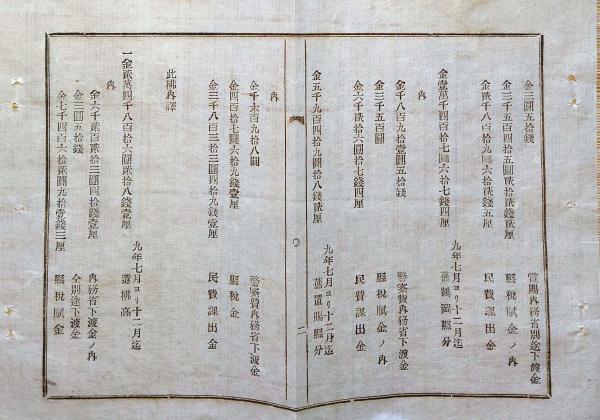 金三圓五拾錢 賞賜內務省別途下渡金
金三千五百四拾五圓貳拾錢貳厘 縣稅賦金ノ內
金貳千八百拾九圓六拾錢五厘 民費課出金
金壹萬千四百拾七圓六拾七錢四厘 九年七月ヨリ十二月迄 舊鶴岡縣分
內
金千八百九拾壹圓五拾錢 警察費內務省下渡金
金三千五百圓 縣稅賦金ノ內
金六千貳拾六圓拾七錢四厘 民費課出金
金五千九百四拾九圓拾八錢貳厘 九年七月ヨリ十二月迄 舊置賜縣分
二
內
金千六百九拾八圓 警察費內務省下渡金
金四百拾七圓六拾九錢壹厘 縣稅賦金
金三千八百三拾三圓四拾九錢壹厘 民費課出金
此拂內譯
一金貳萬四千八百拾六圓貳拾八錢壹厘 九年七月ヨリ十二月迄 還拂高
內
金六千貳百貳拾三圓四拾錢壹厘 內務省下渡金ノ內
金三圓五拾錢 仝別途下渡金
金七千四百六拾貳圓九拾壹錢三厘 縣稅賦金